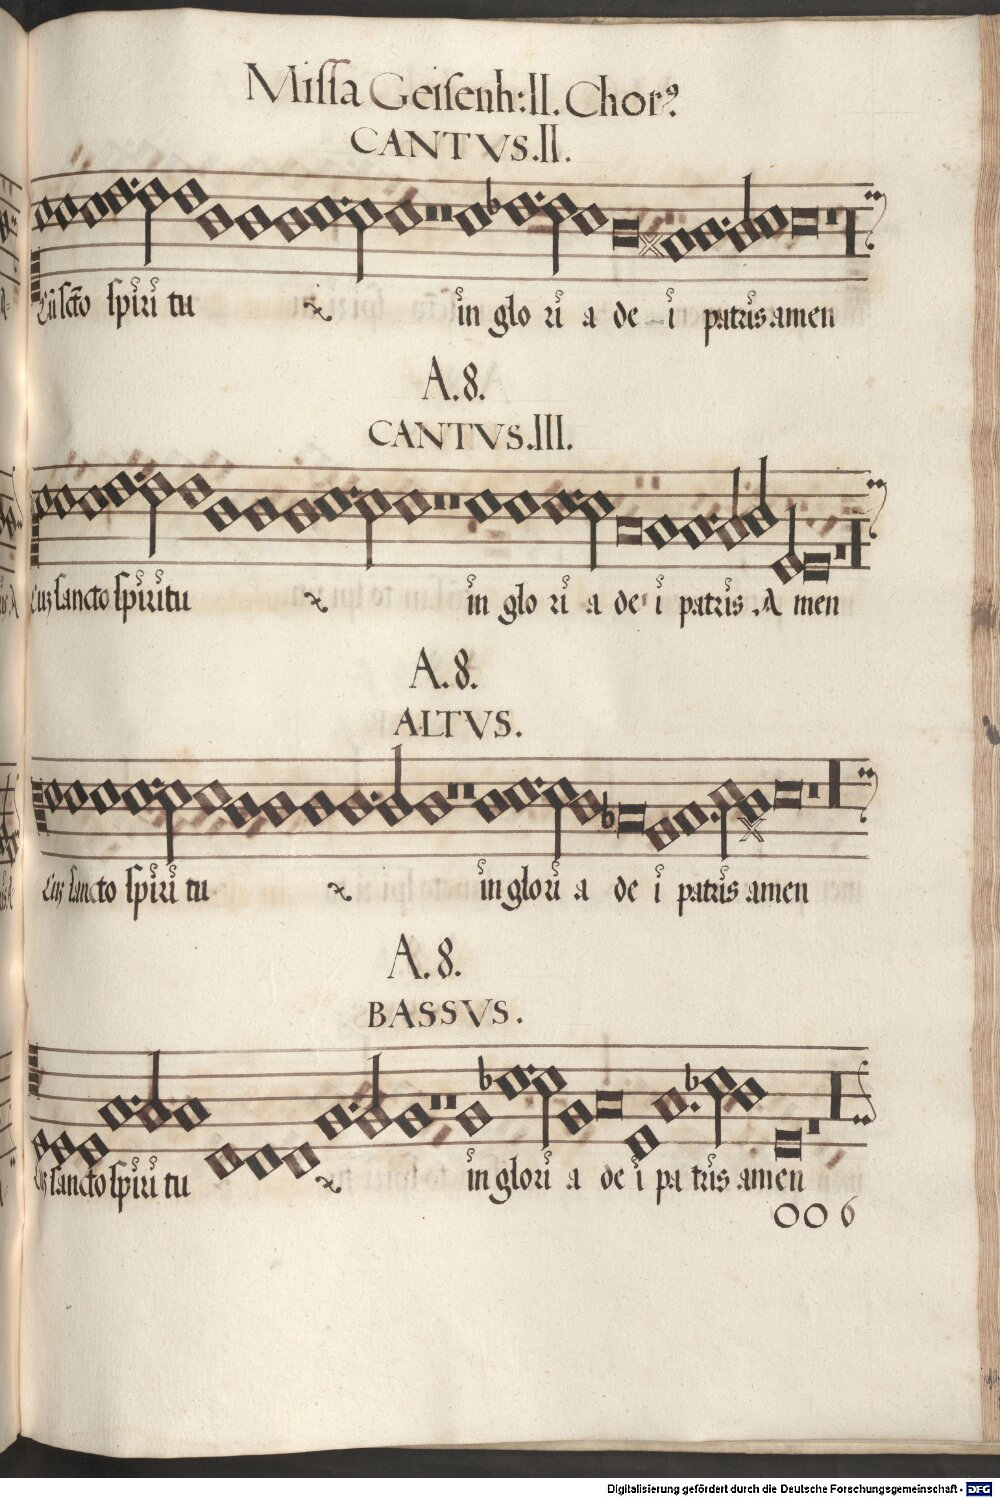 Missa Geisenh: II. Chorꝰ
CANTVS. II.
Cū scto spiritu in gloria dei patris. amen
A. 8.
CANTVS. III.
Cuz sancto spiritu in gloria dei patris. Amen
A. 8.
ALTVS.
Cuz sancto spiritu in gloria dei patris amen
A. 8.
BASSVS.
Cuz sancto spiritu in gloria dei patris amen
OO 6
Digitalisierung gefördert durch die Deutsche Forschungsgemeinschaft - DFG